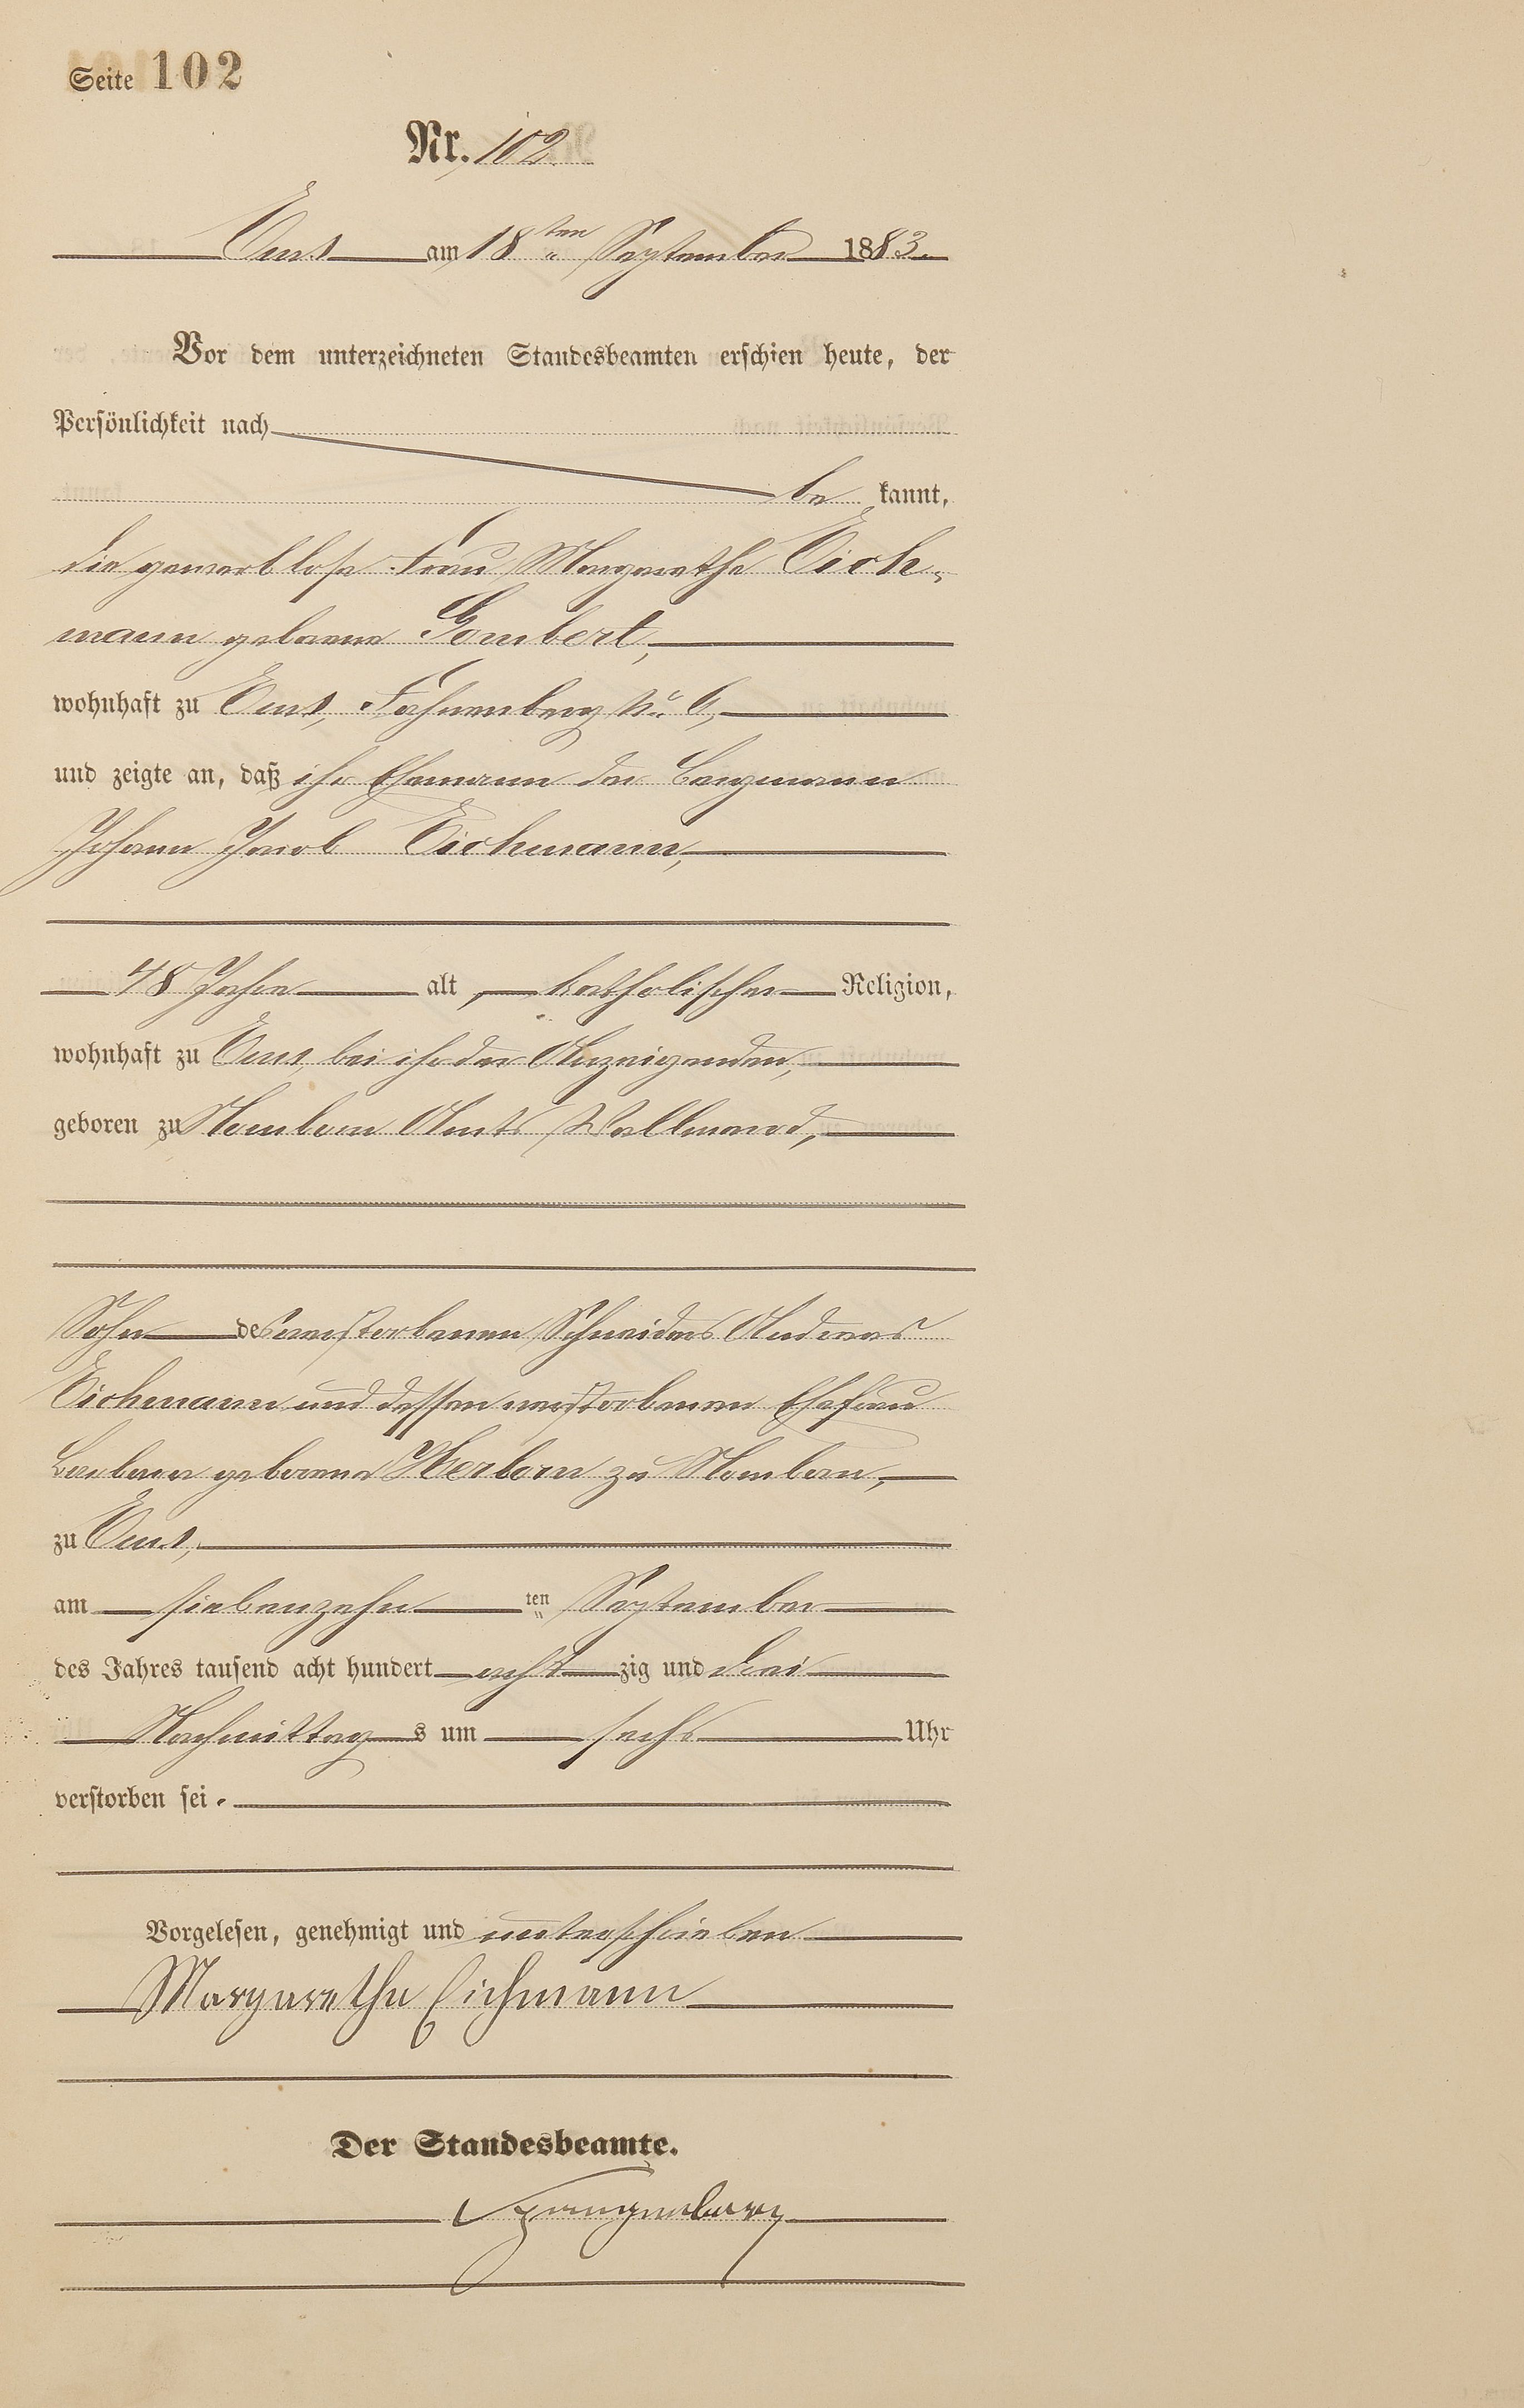 Seite 102
Nr. 102
Ems am 18ten September 1883.
Vor dem unterzeichneten Standesbeamten erschien heute, der
Persönlichkeit nach
be kannt,
die gewerblose Frau Margarethe Eich-
mann geborene Gombert,
wohnhaft zu Ems, No. 6,
und zeigte an, daß ihr Ehemann der Bergmann
Johann Jacob Eichmann,
48 Jahre alt, katholischer Religion,
wohnhaft zu Ems, bei ihr der Anzeigenden,
geboren zu Nomborn Amts Wallmerod,
Sohn des verstorbenen Schneiders Andreas
Eichmann und dessen verstorbenen Ehefrau
Barbara geborene zu Nomborn,
zu Ems,
am siebenzehn ten September
des Jahres tausend acht hundert acht zig und drei
Nachmittag s um sechs Uhr
verstorben sei.
Vorgelesen, genehmigt und unterschrieben
Margaretha Eichmann
Der Standesbeamte.
Spangenberg